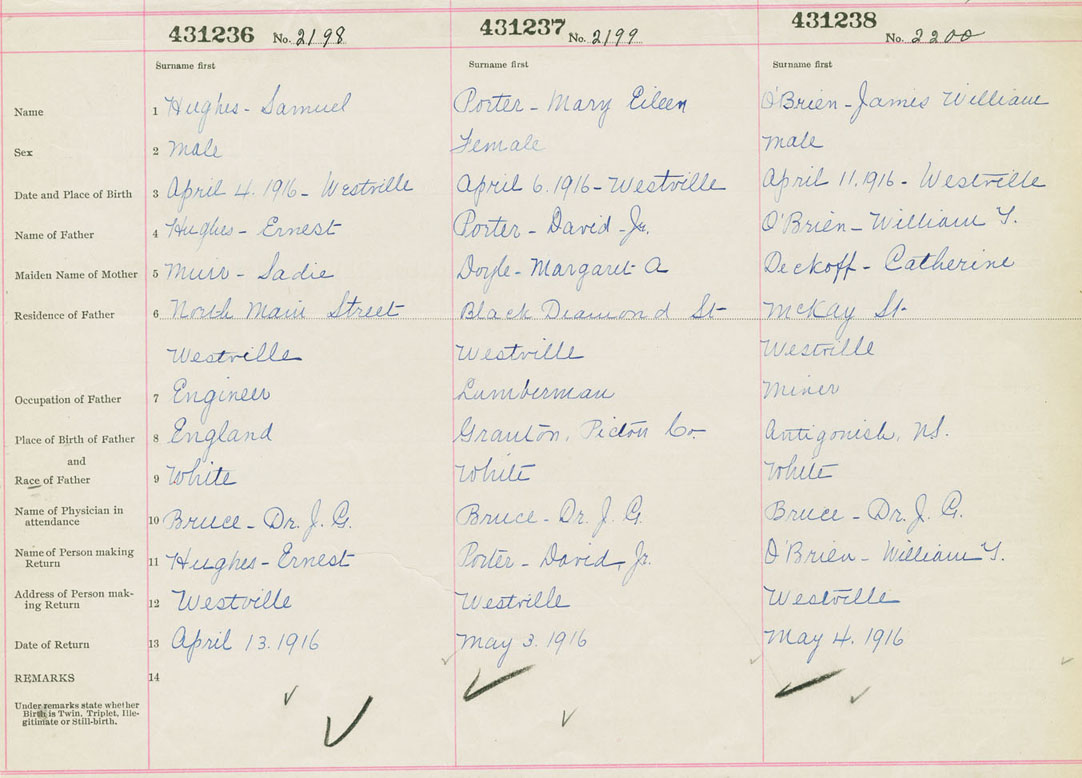 431236 No. 2198 431237 No. 2199 431238 No. 2200
Surname first Surname first Surname first
Name 1 Hughes - Samuel Porter - Mary Eileen O'Brien - James William
Sex 2 Male Female Male
Date and Place of Birth 3 April 4. 1916 - Westville April 6. 1916 - Westville April 11. 1916 - Westville
Name of Father 4 Hughes - Ernest Porter - David - Jr. O'Brien - William Y.
Maiden Name of Mother 5 Muir - Sadie Doyle - Margaret A Deckoff - Catherine
Residence of Father 6 North Main Street Black Diamond St McKay St
Westville Westville Westville
Occupation of Father 7 Engineer Lumberman Miner
Place of Birth of Father 8 England Granton, Pictou Co. Antigonish, NS.
and
Race of Father 9 White White White
Name of Physician in
attendance 10 Bruce - Dr. J. G. Bruce - Dr. J. G. Bruce - Dr. J. G.
Name of Person making
Return 11 Hughes - Ernest Porter - David, Jr. O'Brien - William Y.
Address of Person mak-
ing Return 12 Westville Westville Westville
Date of Return 13 April 13. 1916 May 3. 1916 May 4. 1916
REMARKS 14
Under remarks state whether
Birth is Twin, Triplet, Ille-
gitimate or Still-birth.